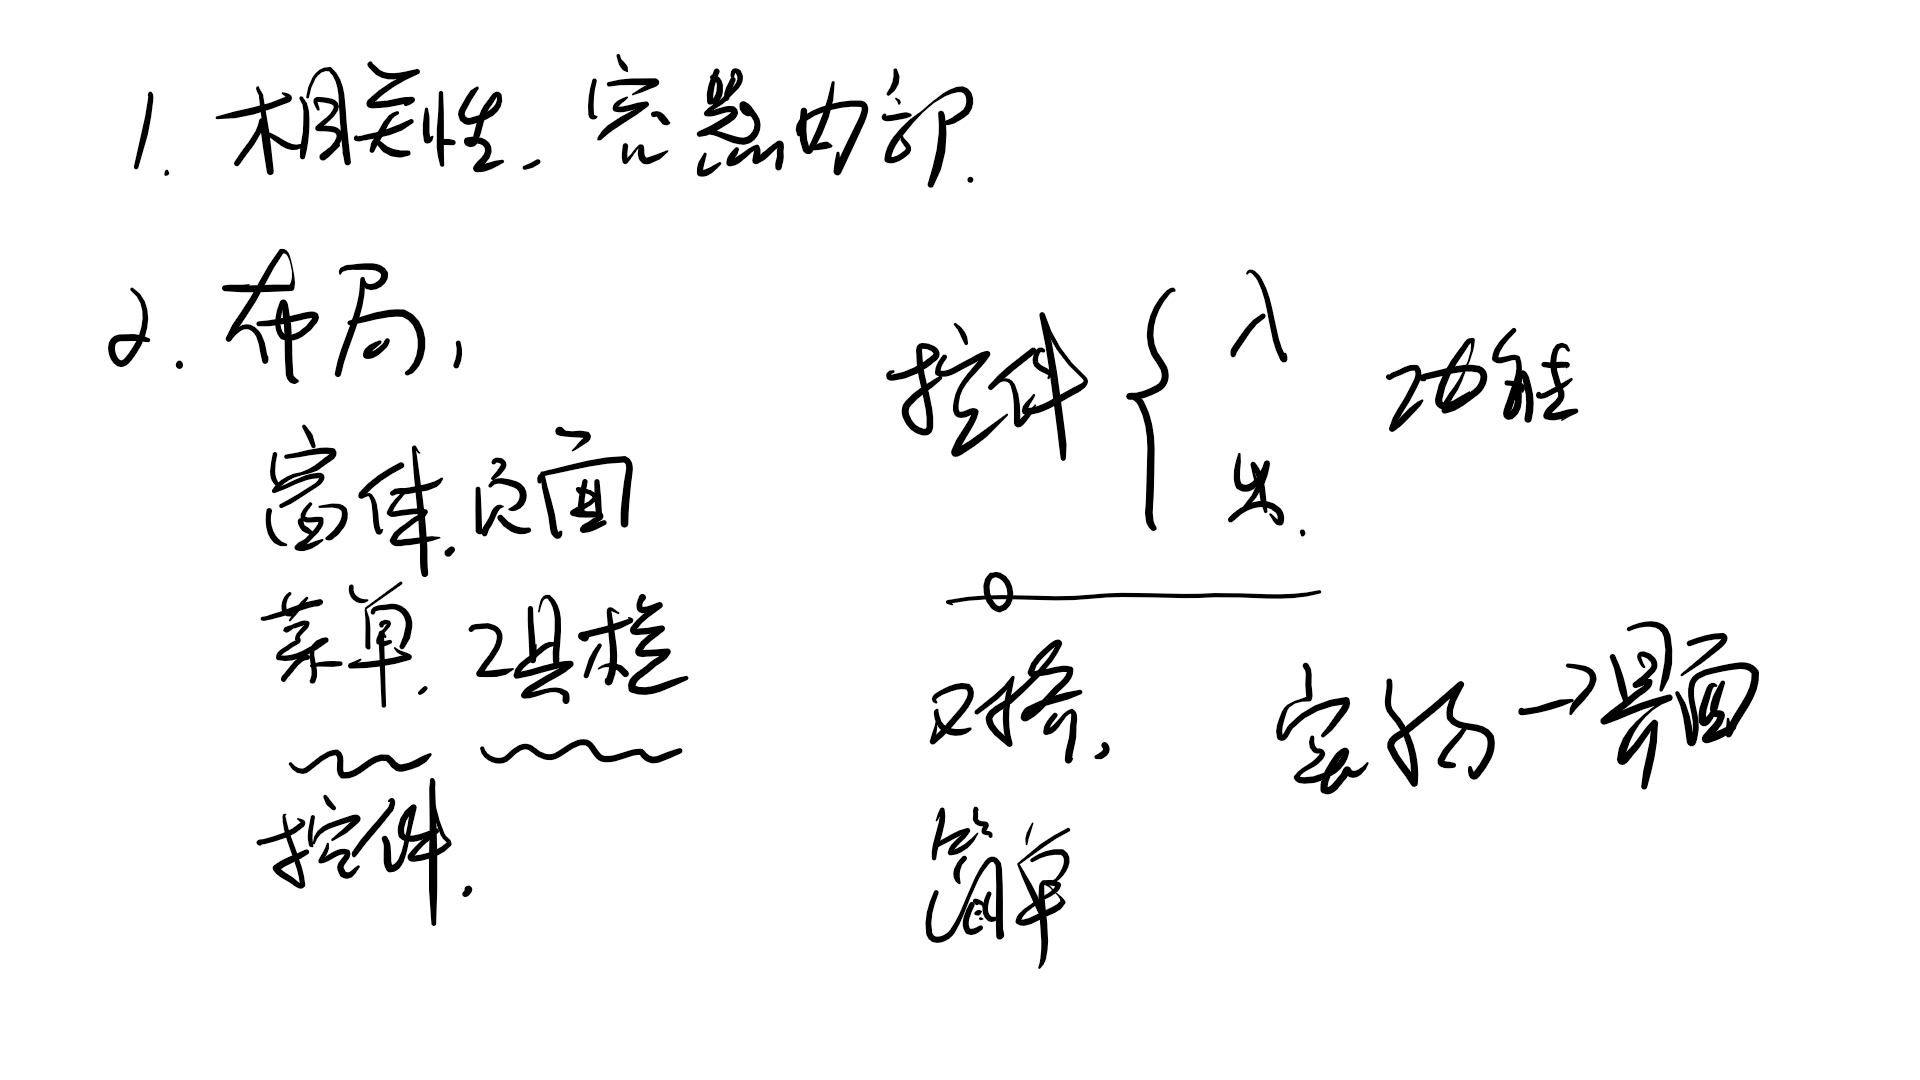 1. 相关性. 容器内部.
2. 布局,
窗体. 页面
菜单. 工具栏
控件.
控件 { 入 功能
出.
对齐,
简单
实物→界面